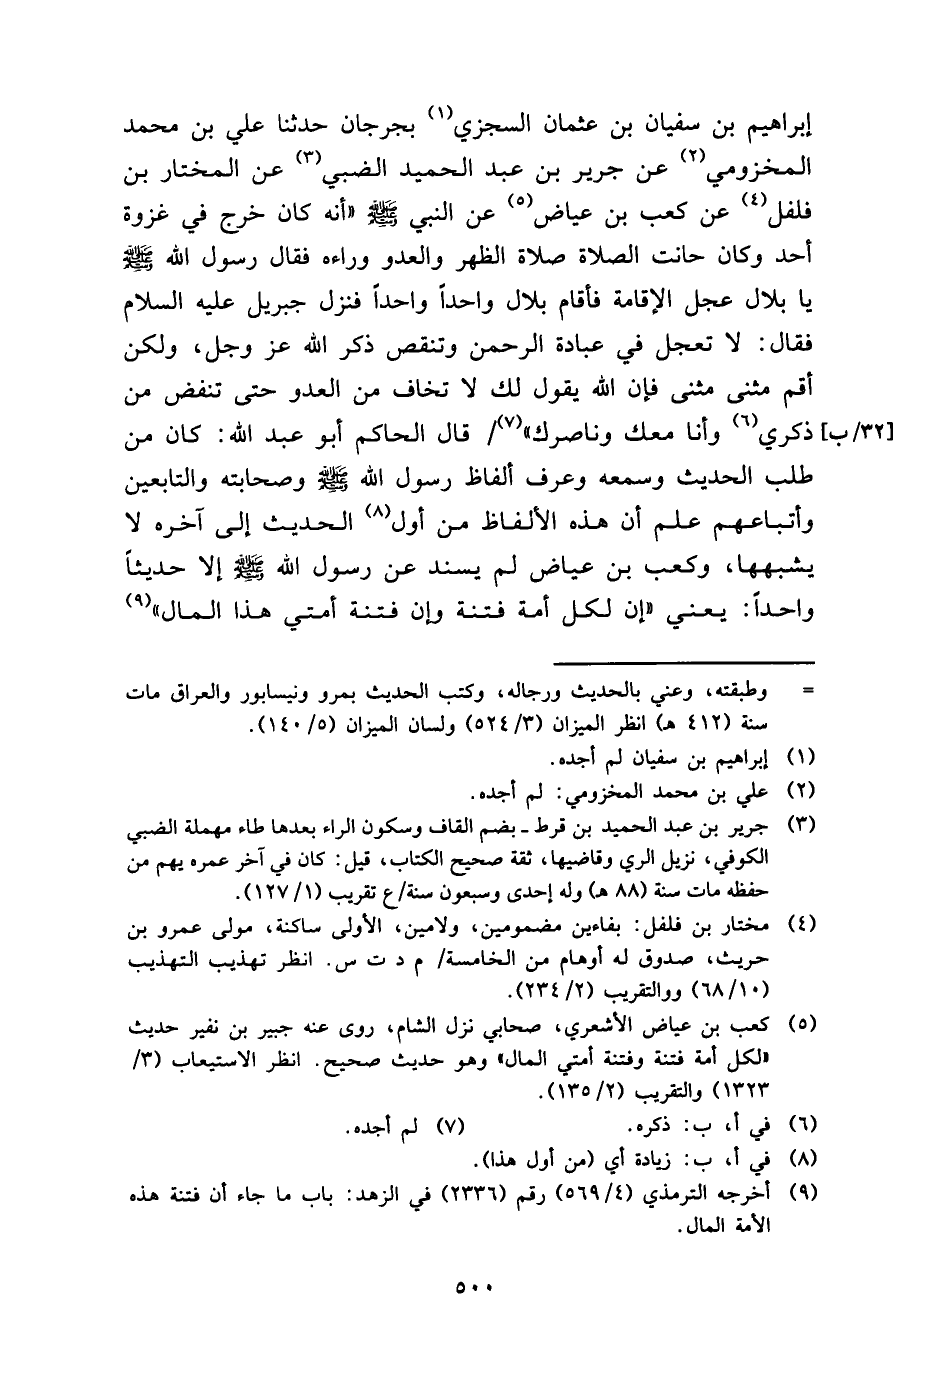 إبراهيم بن سفيان بن عثمان السجزي(١) بجرجان حدثنا علي بن محمد
المخزومي(٢) عن جرير بن عبد الحميد الضبي(٣) عن المختار بن
فلفل(٤) عن كعب بن عياض(٥) عن النبي ﷺ «أنه كان خرج في غزوة
أحد وكان حانت الصلاة صلاة الظهر والعدو وراءه فقال رسول الله ﷺ
يا بلال عجل الإقامة فأقام بلال واحداً واحداً فنزل جبريل عليه السلام
فقال: لا تعجل في عبادة الرحمن وتنقص ذكر الله عز وجل، ولكن
أقم مثنى مثنى فإن الله يقول لك لا تخاف من العدو حتى تنفض من
[٣٢/ب] ذكري(٦) وأنا معك وناصرك»(٧)/ قال الحاكم أبو عبد الله: كان من
طلب الحديث وسمعه وعرف ألفاظ رسول الله ﷺ وصحابته والتابعين
وأتباعهم علم أن هذه الألفاظ من أول(٨) الحديث إلى آخره لا
يشبهها، وكعب بن عياض لم يسند عن رسول الله ﷺ إلا حديثاً
واحداً: يعني «إن لكل أمة فتنة وإن فتنة أمتي هذا المال»(٩)
= وطبقته، وعني بالحديث ورجاله، وكتب الحديث بمرو ونيسابور والعراق مات
سنة (٤١٢ هـ) انظر الميزان (٣/ ٥٢٤) ولسان الميزان (٥/ ١٤٠).
(١) إبراهيم بن سفيان لم أجده.
(٢) علي بن محمد المخزومي: لم أجده.
(٣) جرير بن عبد الحميد بن قرط ـ بضم القاف وسكون الراء بعدها طاء مهملة الضبي
الكوفي، نزيل الري وقاضيها، ثقة صحيح الكتاب، قيل: كان في آخر عمره يهم من
حفظه مات سنة (٨٨ هـ) وله إحدى وسبعون سنة/ع تقريب (١/ ١٢٧).
(٤) مختار بن فلفل: بفاءين مضمومين، ولامين، الأولى ساكنة، مولى عمرو بن
حريث، صدوق له أوهام من الخامسة/ م د ت س. انظر تهذيب التهذيب
(١٠/ ٦٨) ووالتقريب (٢/ ٢٣٤).
(٥) كعب بن عياض الأشعري، صحابي نزل الشام، روى عنه جبير بن نفير حديث
«لكل أمة فتنة وفتنة أمتي المال» وهو حديث صحيح. انظر الاستيعاب (٣/
١٣٢٣) والتقريب (٢/ ١٣٥).
(٦) في أ، ب: ذكره. (٧) لم أجده.
(٨) في أ، ب: زيادة أي (من أول هذا).
(٩) أخرجه الترمذي (٤/ ٥٦٩) رقم (٢٣٣٦) في الزهد: باب ما جاء أن فتنة هذه
الأمة المال.
٥٠٠